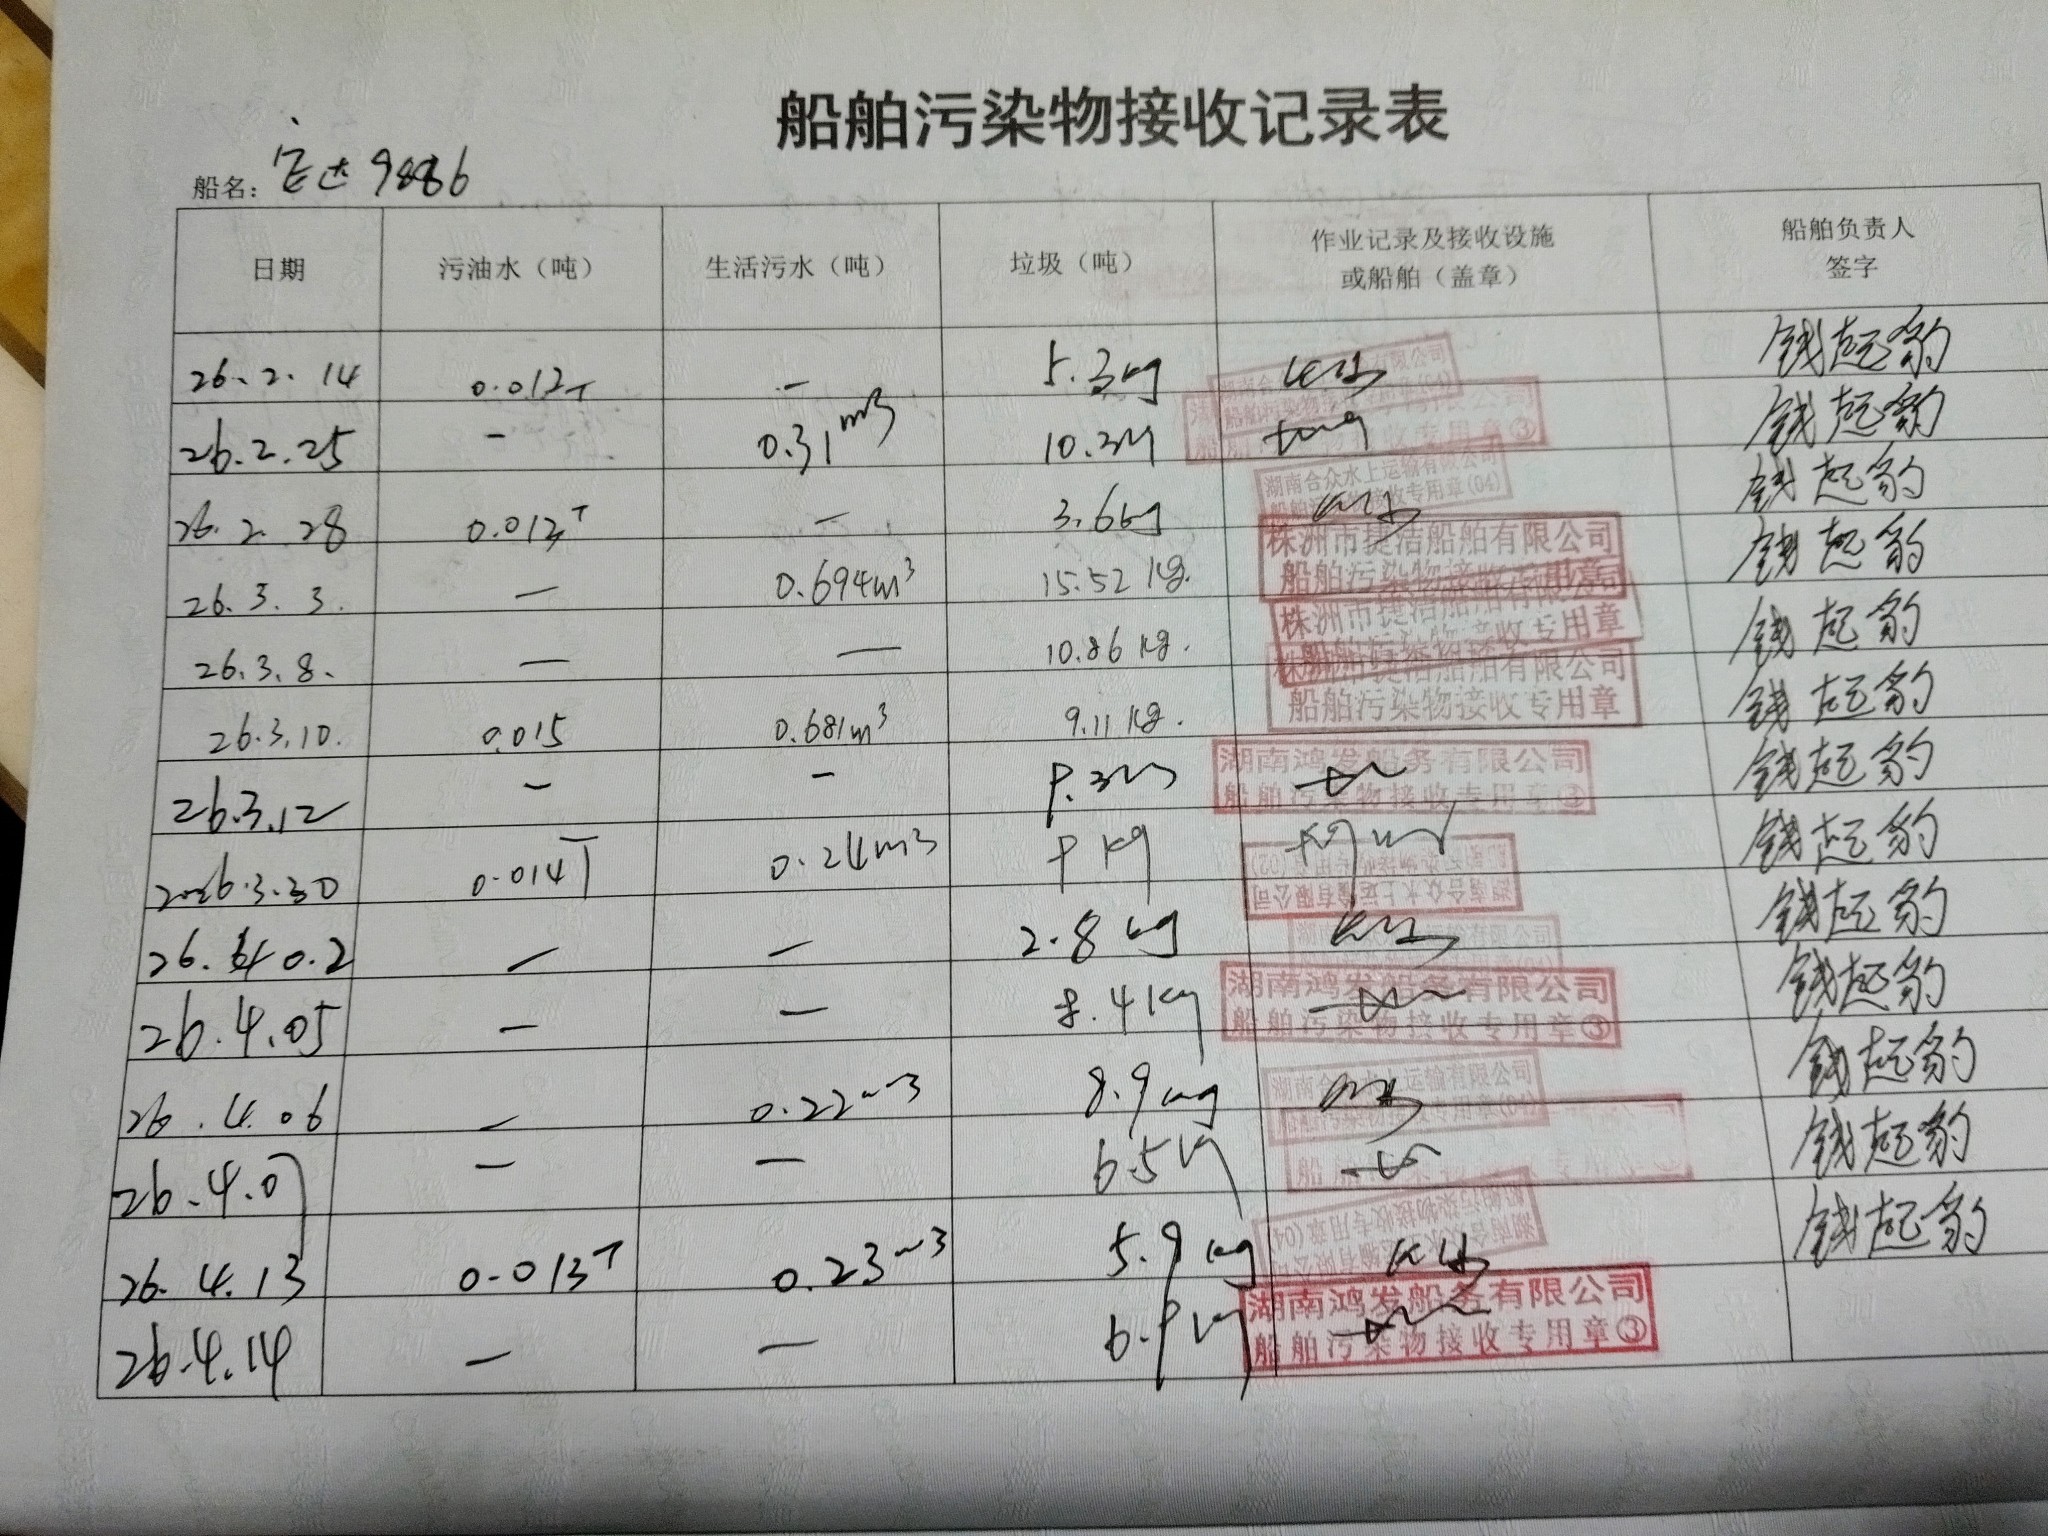 船舶污染物接收记录表
船名: 宏达9886
日期 污油水（吨） 生活污水（吨） 垃圾（吨） 作业记录及接收设施或船舶（盖章） 船舶负责人签字
26.2.14 0.012T — 5.3kg 钱起豹
26.2.25 — 0.31m3 钱起豹
26.2.28 0.013T — 3.6kg 湖南合众水上运输有限公司 船舶污染物接收专用章(04) 钱起豹
26.3.3. — 0.694m³ 15.52kg. 株洲市捷洁船舶有限公司 船舶污染物接收专用章 钱起豹
26.3.8. — — 10.86kg. 株洲市捷洁船舶有限公司 船舶污染物接收专用章 钱起豹
26.3.10. 0.015 0.681m³ 9.11kg. 株洲市捷洁船舶有限公司 船舶污染物接收专用章 钱起豹
26.3.12 — — 湖南鸿发船务有限公司 船舶污染物接收专用章③ 钱起豹
2026.3.30 0.014T 0.24m3 9kg 湖南合众水上运输有限公司 船舶污染物接收专用章(02) 钱起豹
26.4 0.2 — — 2.8kg 钱起豹
26.4.05 — — 8.4kg 湖南鸿发船务有限公司 船舶污染物接收专用章③ 钱起豹
26.4.06 — 0.22m3 8.9kg 湖南合众水上运输有限公司 船舶污染物接收专用章(04) 钱起豹
26.4.07 — — 6.5kg 钱起豹
26.4.13 0.013T 0.23m3 5.9kg 湖南合众水上运输有限公司 船舶污染物接收专用章(04) 钱起豹
26.4.14 — — 6.9kg 湖南鸿发船务有限公司 船舶污染物接收专用章③